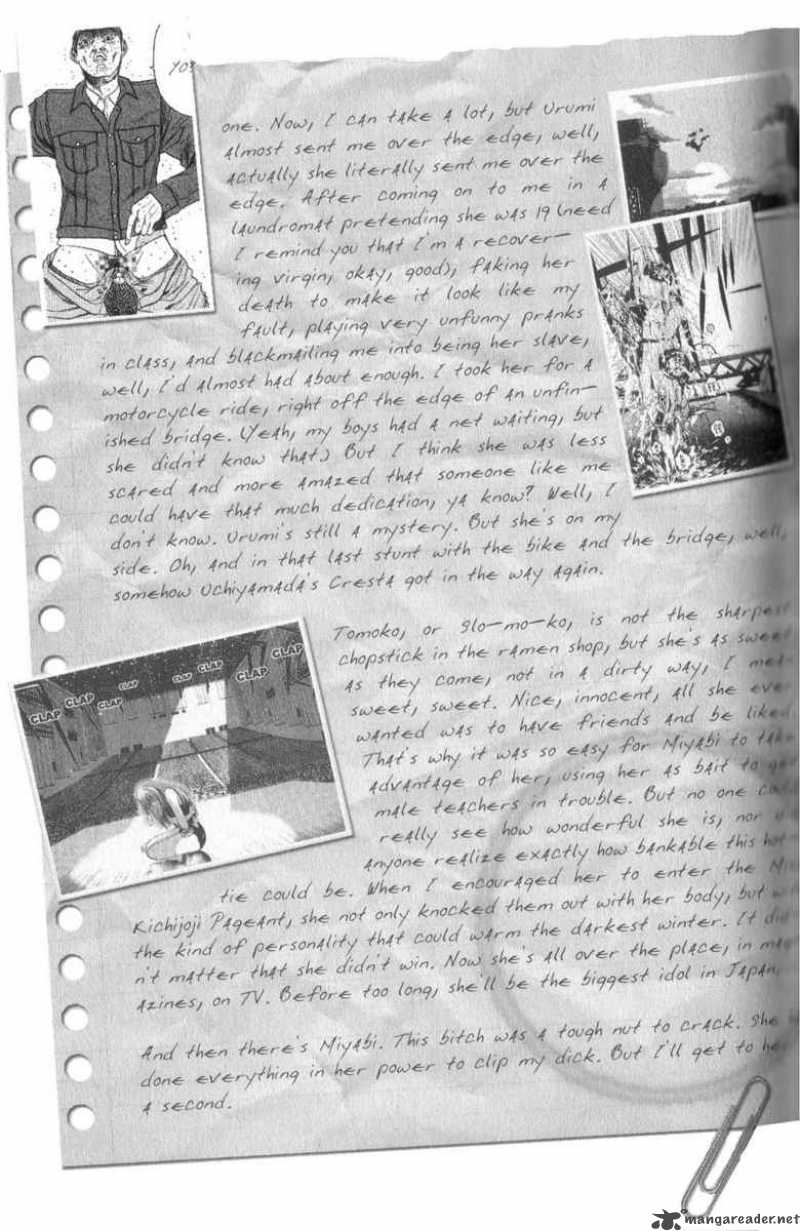 YO!
one. Now, I can take a lot, but Urumi
almost sent me over the edge, well,
actually she literally sent me over the
edge. After coming on to me in a
laundromat pretending she was 19 (need
I remind you that I'm a recover-
ing virgin, okay, good), faking her
death to make it look like my
fault, playing very unfunny pranks
in class, and blackmailing me into being her slave,
well, I'd almost had about enough. I took her for a
motorcycle ride, right off the edge of an unfin-
ished bridge. (Yeah, my boys had a net waiting, but
she didn't know that.) But I think she was less
scared and more amazed that someone like me
could have that much dedication, ya know? Well, I
don't know. Urumi's still a mystery. But she's on my
side. Oh, and in that last stunt with the bike and the bridge, well,
somehow Uchiyamada's Cresta got in the way again.
CLAP CLAP CLAP CLAP CLAP CLAP CLAP CLAP
Tomoko, or Slo-mo-ko, is not the sharpest
chopstick in the ramen shop, but she's as sweet
as they come, not in a dirty way, I
sweet, sweet. Nice, innocent, all she ever
wanted was to have friends and be liked.
That's why it was so easy for Miyabi to take
advantage of her, using her as bait to
male teachers in trouble. But no one
really see how wonderful she is, nor
anyone realize exactly how bankable this
tie could be. When I encouraged her to enter the
Kichijoji Pageant, she not only knocked them out with her body, but
the kind of personality that could warm the darkest winter. It
n't matter that she didn't win. Now she's all over the place, in
azines, on TV. Before too long, she'll be the biggest idol in Japan.
And then there's Miyabi. This bitch was a tough nut to crack. She
done everything in her power to clip my dick. But I'll get to
a second.
mangareader.net